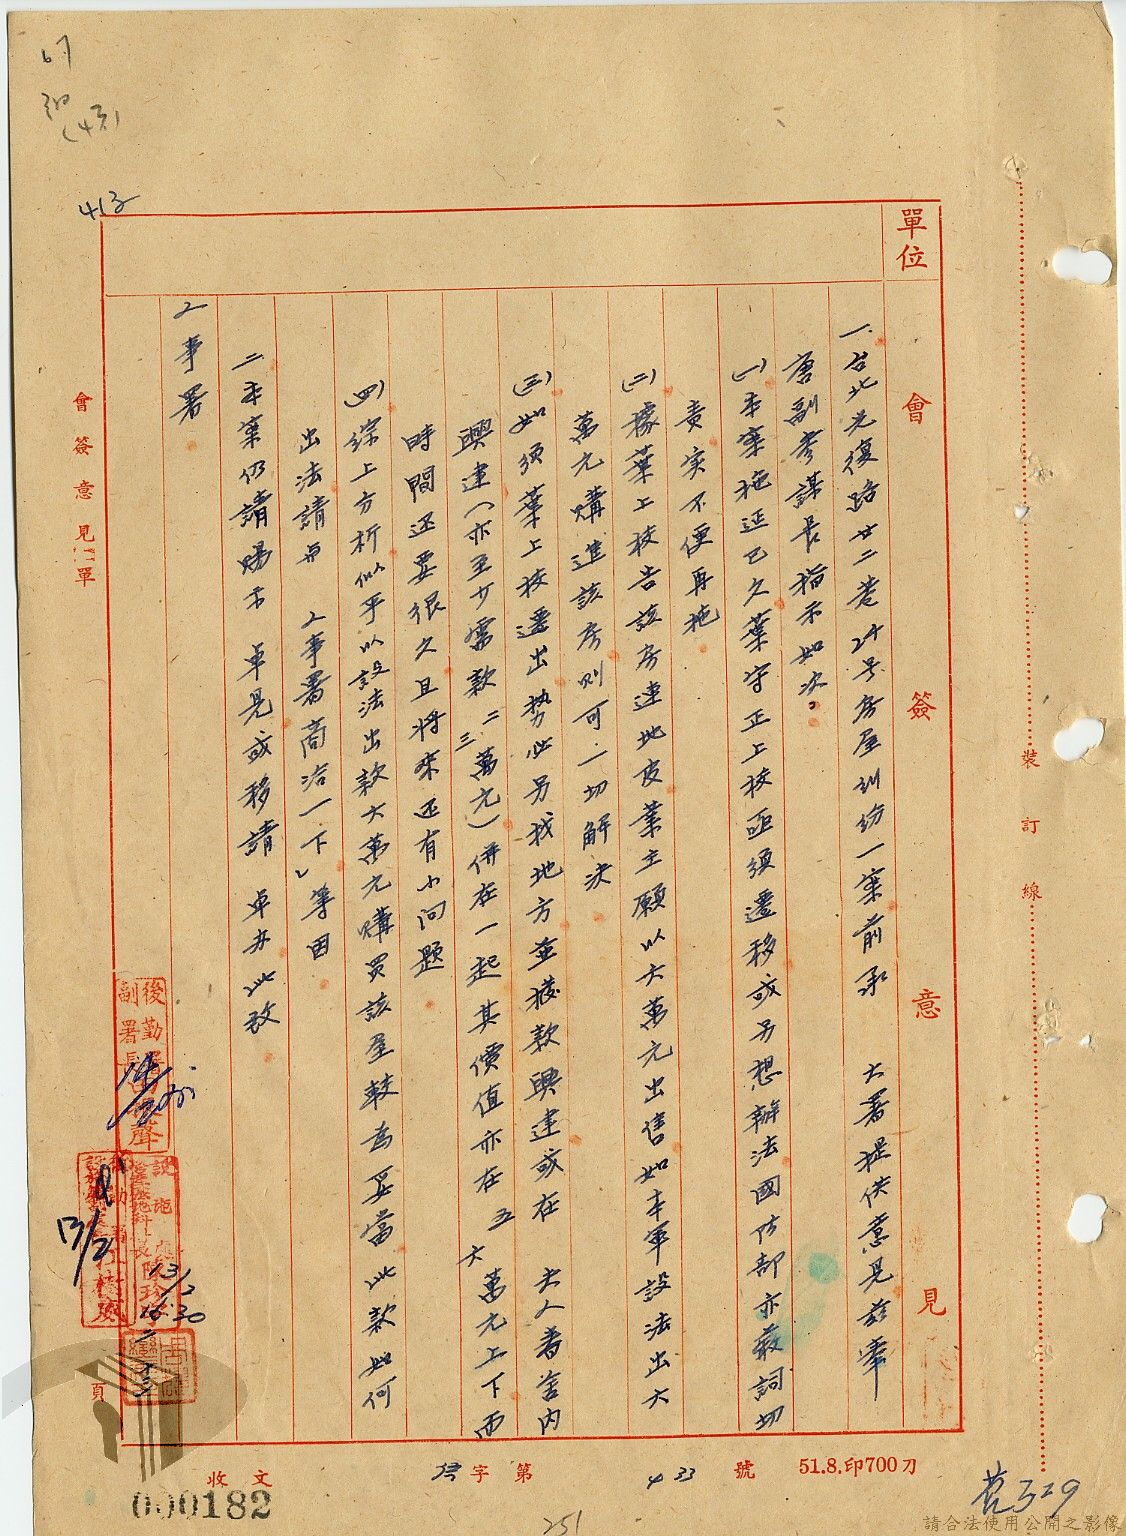 413
單位
會簽意見
一、台北光復路廿二巷24号房屋糾紛一案前承 大署提供意見茲奉
唐副參謀長指示如次。
(一)本案拖延已久葉守正上校亟須遷移或另想辦法國防部亦嚴詞切
責实不便再拖
(二)據葉上校告該房連地皮業主願以六萬元出售如本軍設法出六
萬元購進該房則可一切解決
(三)如須葉上校遷出势必另找地方並撥款興建或在 夫人書舍內
興建(亦至少需款二三萬元)併在一起其價值亦在五六萬元上下而
時間还要很久且將來还有小问題
(四)綜上分析似乎以設法出款六萬元購買該屋較為妥當此款如何
出法請与 人事署商洽一下」等因
二、本案仍請賜示 卓見或移請 卓办此致
人事署
會簽意見單
頁
裝訂線
收文
000182
字第 433 號
51.8.印700刀
13/2
13/2
16:30
251
請合法使用公開之影像